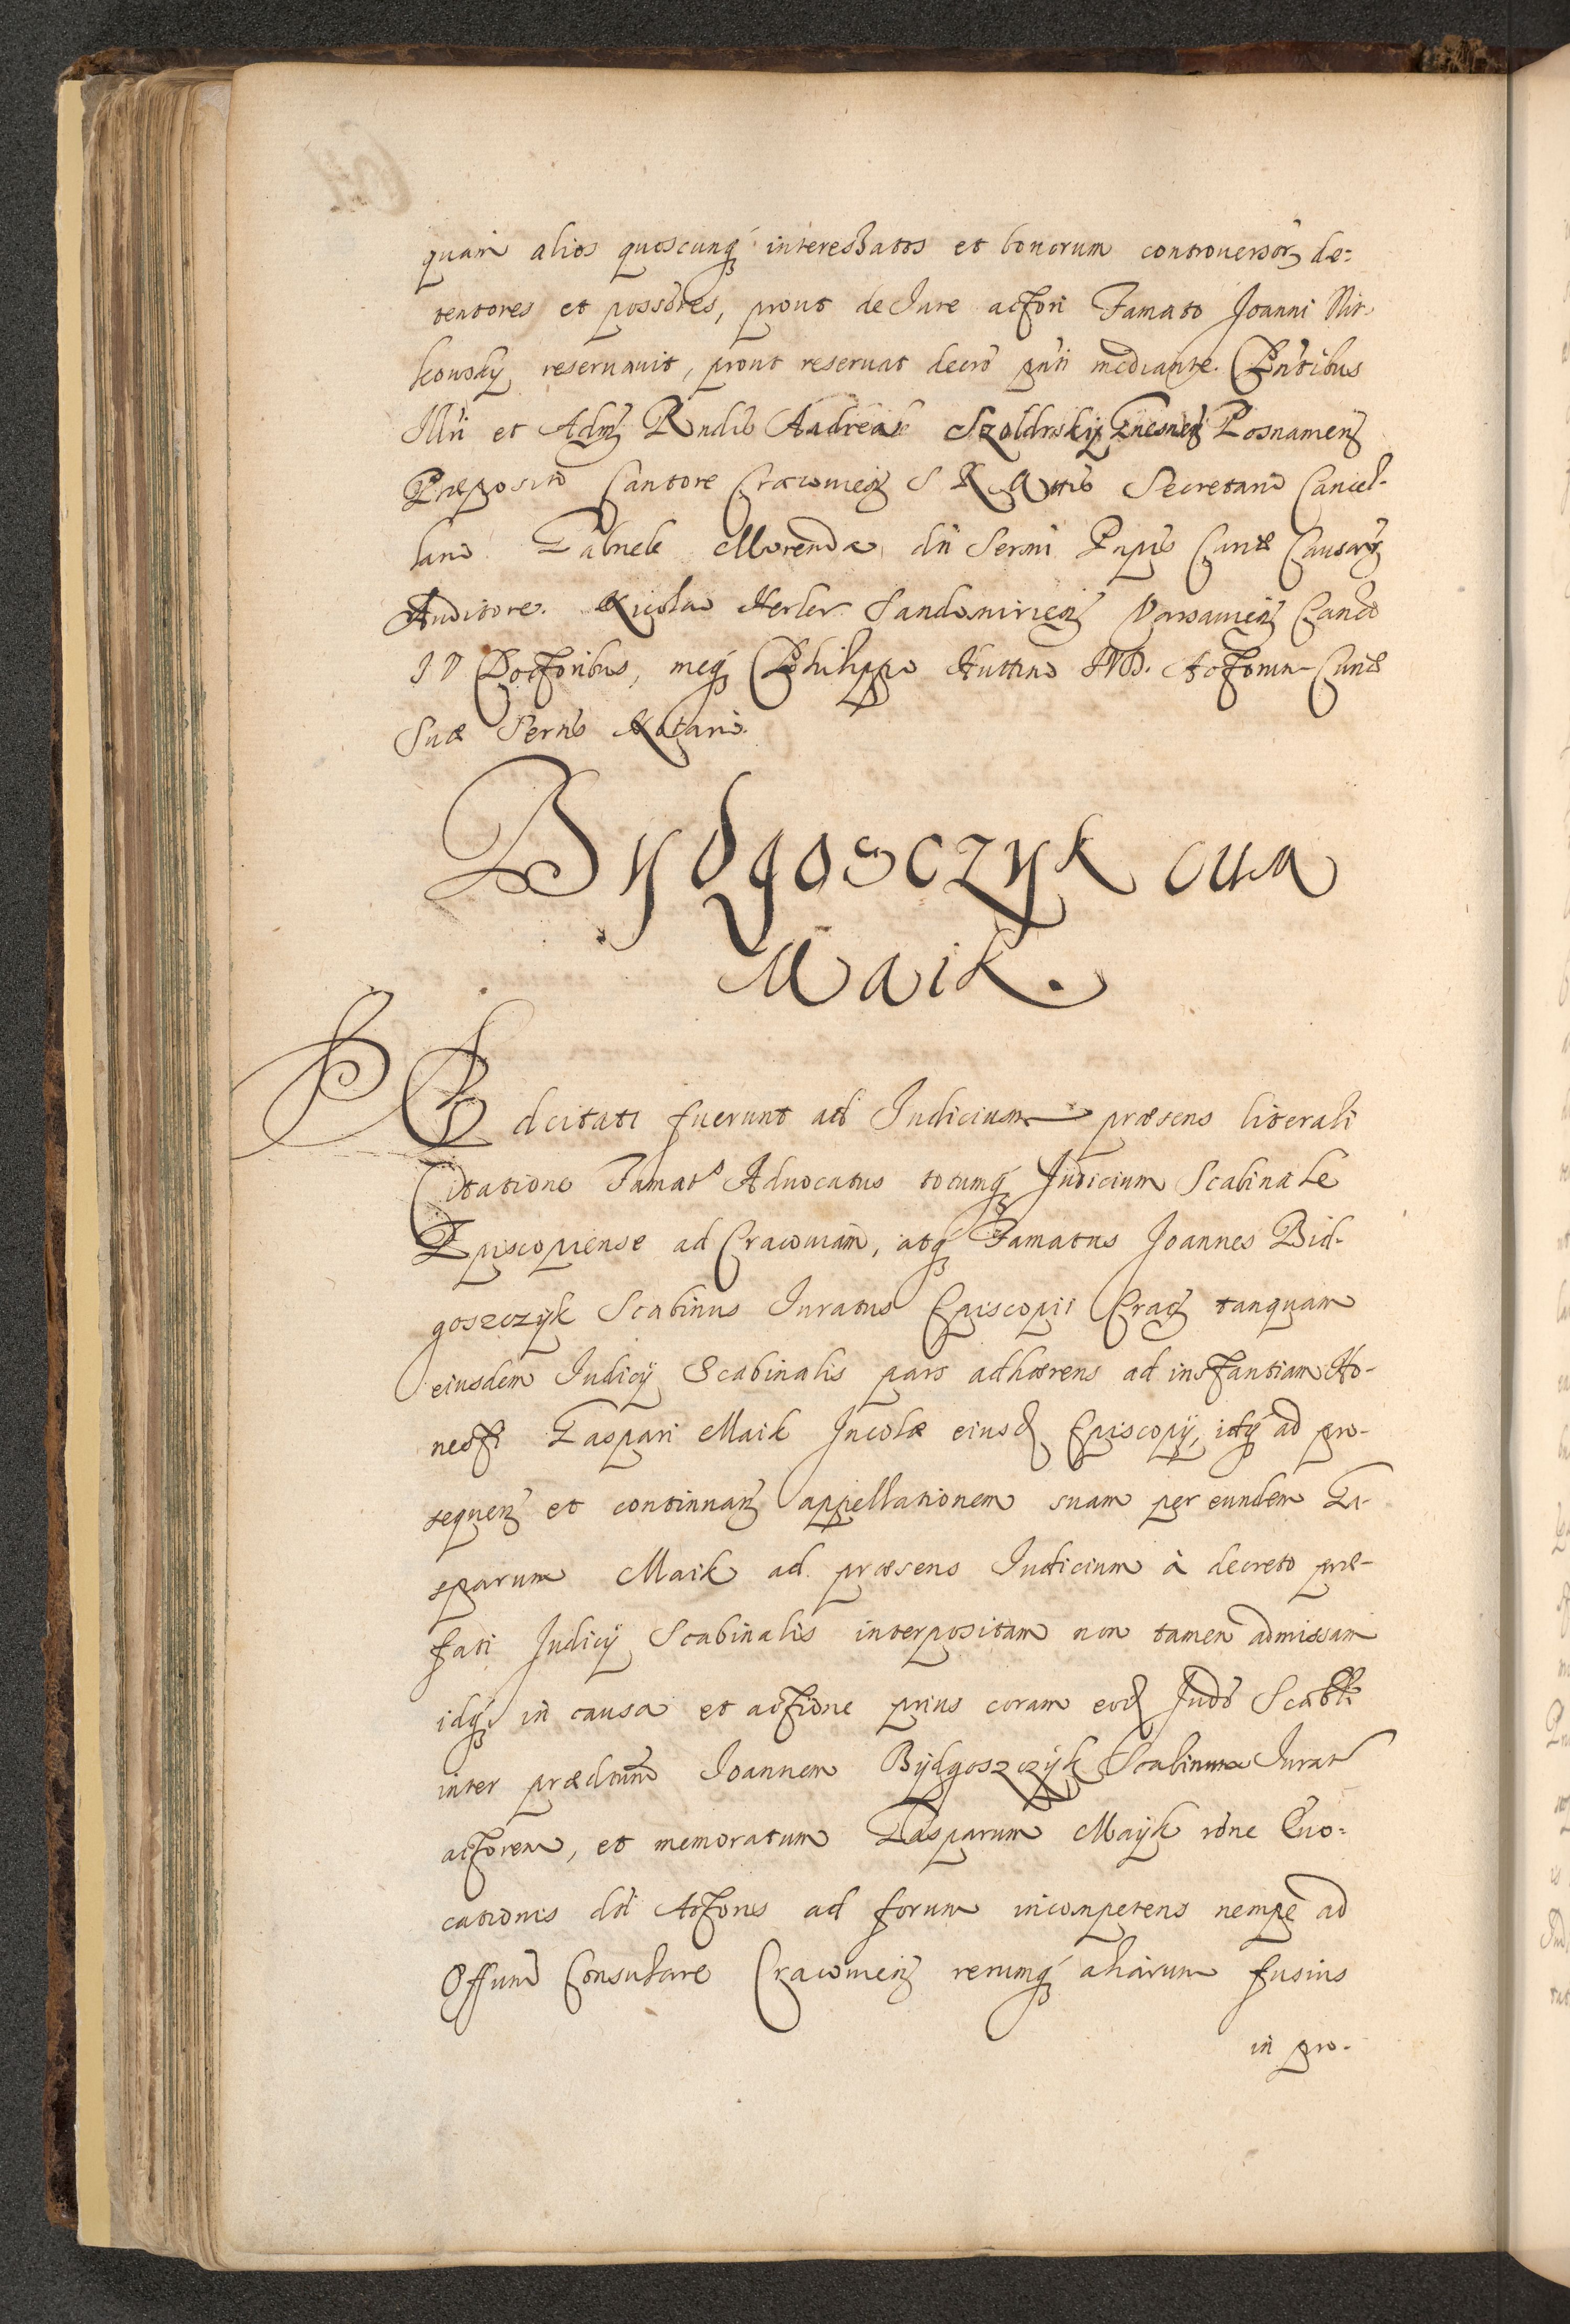 quam alios quoscunq́ interessatos et bonorum controuersor de=
tentores et possores, prout de Jure actori Famato Joanni Nit-
kowsky reseruauit, prout reseruat decro pnti mediante. Pntibus
Illri et Adm Rndis Andrea Szoldrskij Gnesnen Posnamen
Præposito Cantore Cracouien S R Mttis Secretario Cancel-
lario Gabriele Morenda dni Sermi Pnpis Curiæ Causar
Auditore. Nicolao Kerler Sandomirien Varsauien Canco
J V Doctoribus, meq́ Philippo Huttino JVD. Actorum Curiæ
Suæ Sernis Notario.
Bydgosczyk cum
Maik.
Adcitati fuerunt ad Judicium præsens literali
Citatione Famats Aduocatus totumq́ Judicium Scabinale
Episcopiense ad Cracouiam, atq́ Famatus Joannes Bid-
goszczyk Scabinus Juratus Episcopii Crac tanquam
eiusdem Judicij Scabinalis pars adhærens ad instantiam Ho-
nesti Gaspari Maik Incolæ eiusd Episcopij, idq́ ad pro-
sequen et continuan appellationem suam per eundem Ga-
sparum Maik ad præsens Judicium à decreto præ-
fati Judicij Scabinalis interpositam non tamen admissam
idq́ in causa et actione prius coram eod Judo Scabli
inter prædctum Joannem Bÿdgoszczÿk Scabinum Jurat
actorem, et memoratum Gasparum Mayk rone Euo=
cationis dti Actoris ad forum incompetens nempe ad
Offium Consulare Cracouien rerumq́ aliarum fusius
in pro-